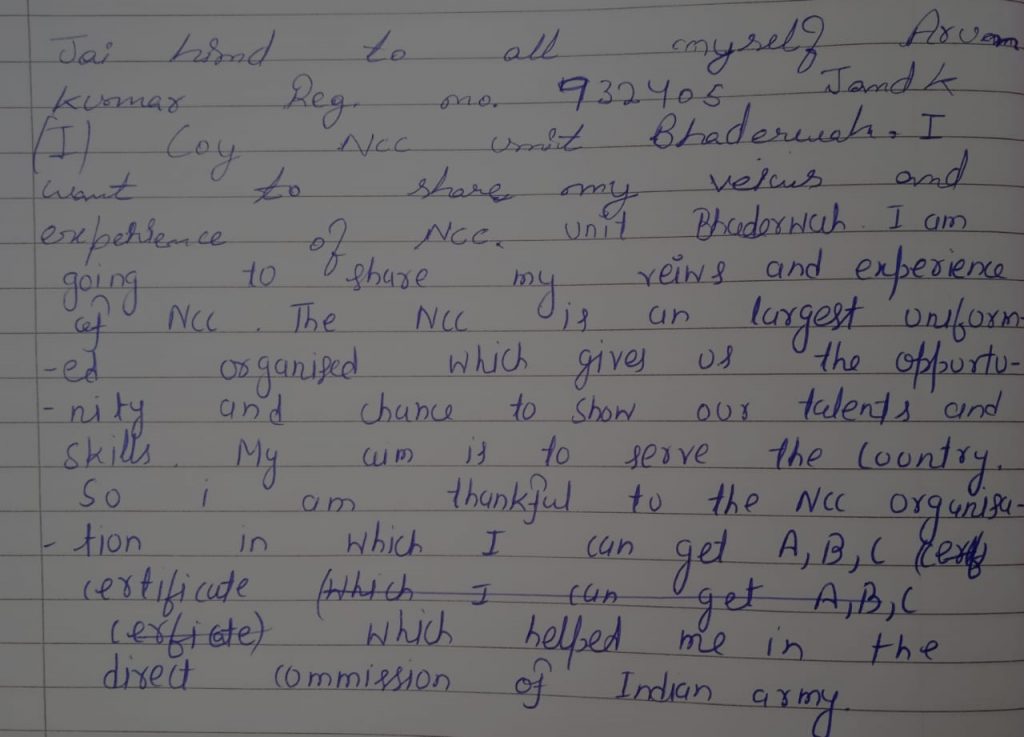 Jai hind to all myself Arvan
kumar Reg. no. 932405 JandK
(I) Coy NCC unit Bhaderwah. I
want to share my veiws and
experience of NCC. unit Bhaderwah. I am
going to share my veiws and experience
of NCC. The NCC is an largest uniform-
-ed organised which gives us the opportu-
-nity and chance to show our talents and
skills. My aim is to serve the country.
So i am thankful to the NCC organisa-
-tion in which I can get A, B, C
certificate (which I can get A, B, C
cerficate) which helped me in the
direct commission of Indian army.